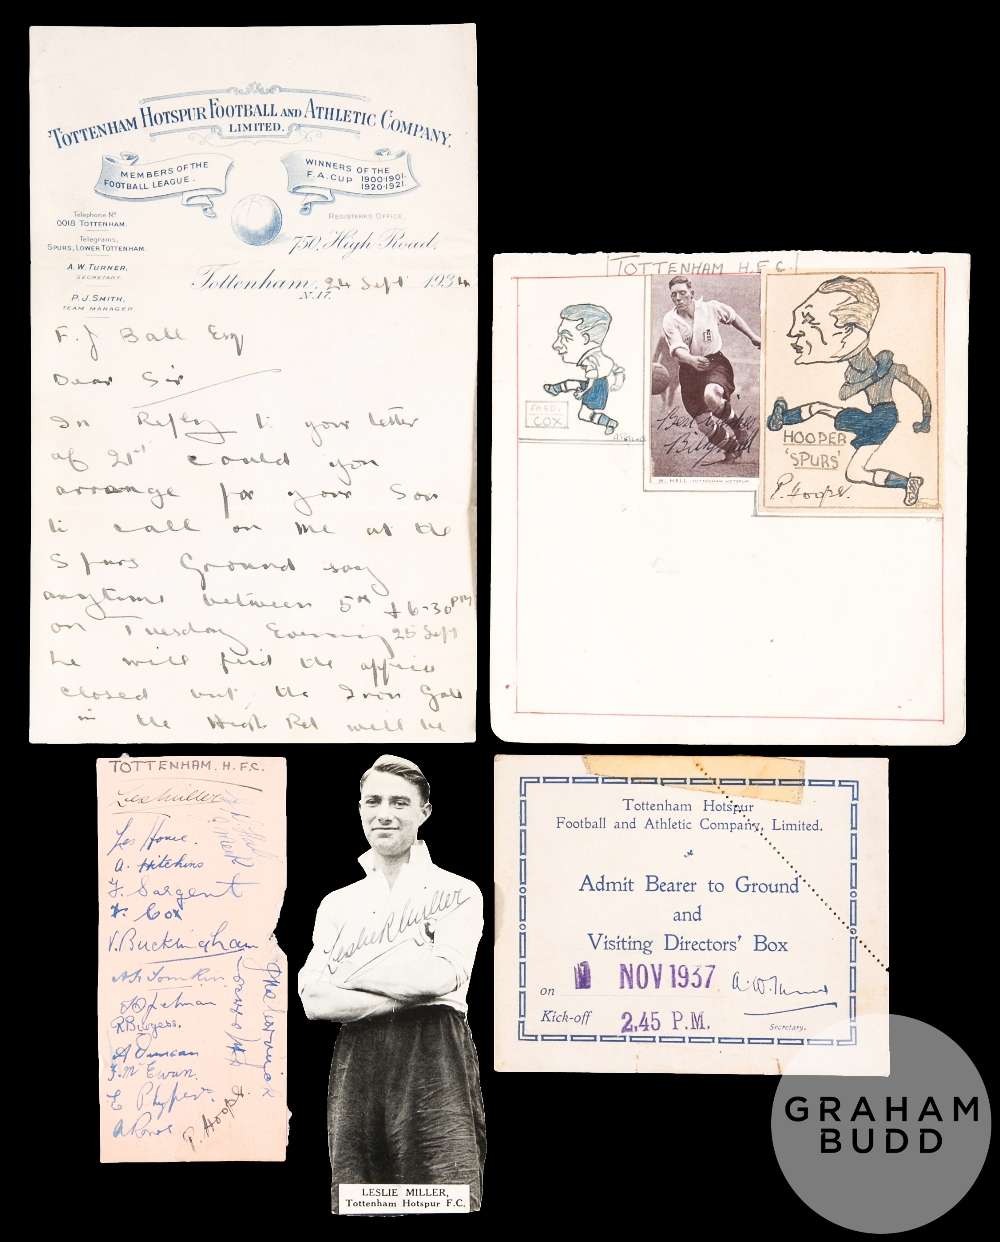 TOTTENHAM HOTSPUR FOOTBALL AND ATHLETIC COMPANY,
LIMITED.
MEMBERS OF THE
FOOTBALL LEAGUE.
WINNERS OF THE
F.A. CUP 1900-1901.
1920-1921.
Telephone No
0018 TOTTENHAM.
Telegrams,
SPURS, LOWER TOTTENHAM.
A. W. TURNER,
SECRETARY.
P. J. SMITH,
TEAM MANAGER
REGISTERED OFFICE,
750, High Road,
Tottenham, 24 Sept 1934
N.17.
F. J Ball Esq
Dear Sir
In Reply to your letter
of 21st could you
arrange for your Son
to call on me at the
Spurs Ground say
anytime between 5 PM & 6-30 PM
on Tuesday Evening 25 Sept
he will find the office
closed but the Iron Gate
in the High Rd will be
TOTTENHAM H.F.C.
FRED.
COX
Best wishes
Billy Hall
W. HALL (TOTTENHAM HOTSPUR)
HOOPER
'SPURS'
P. Hooper.
TOTTENHAM. H. F.C.
Les Miller
Les Howe.
A. Hitchins
F. Sargent
F. Cox
V. Buckingham
A H Tomkin
R Burgess.
A Duncan
J. McEwan.
E Phypers
A Rowe
P. Hooper
Leslie R Miller
LESLIE MILLER,
Tottenham Hotspur F.C.
Tottenham Hotspur
Football and Athletic Company, Limited.
Admit Bearer to Ground
and
Visiting Directors' Box
on NOV 1937
A. W. Turner
Kick-off 2.45 P.M. Secretary.
GRAHAM
BUDD